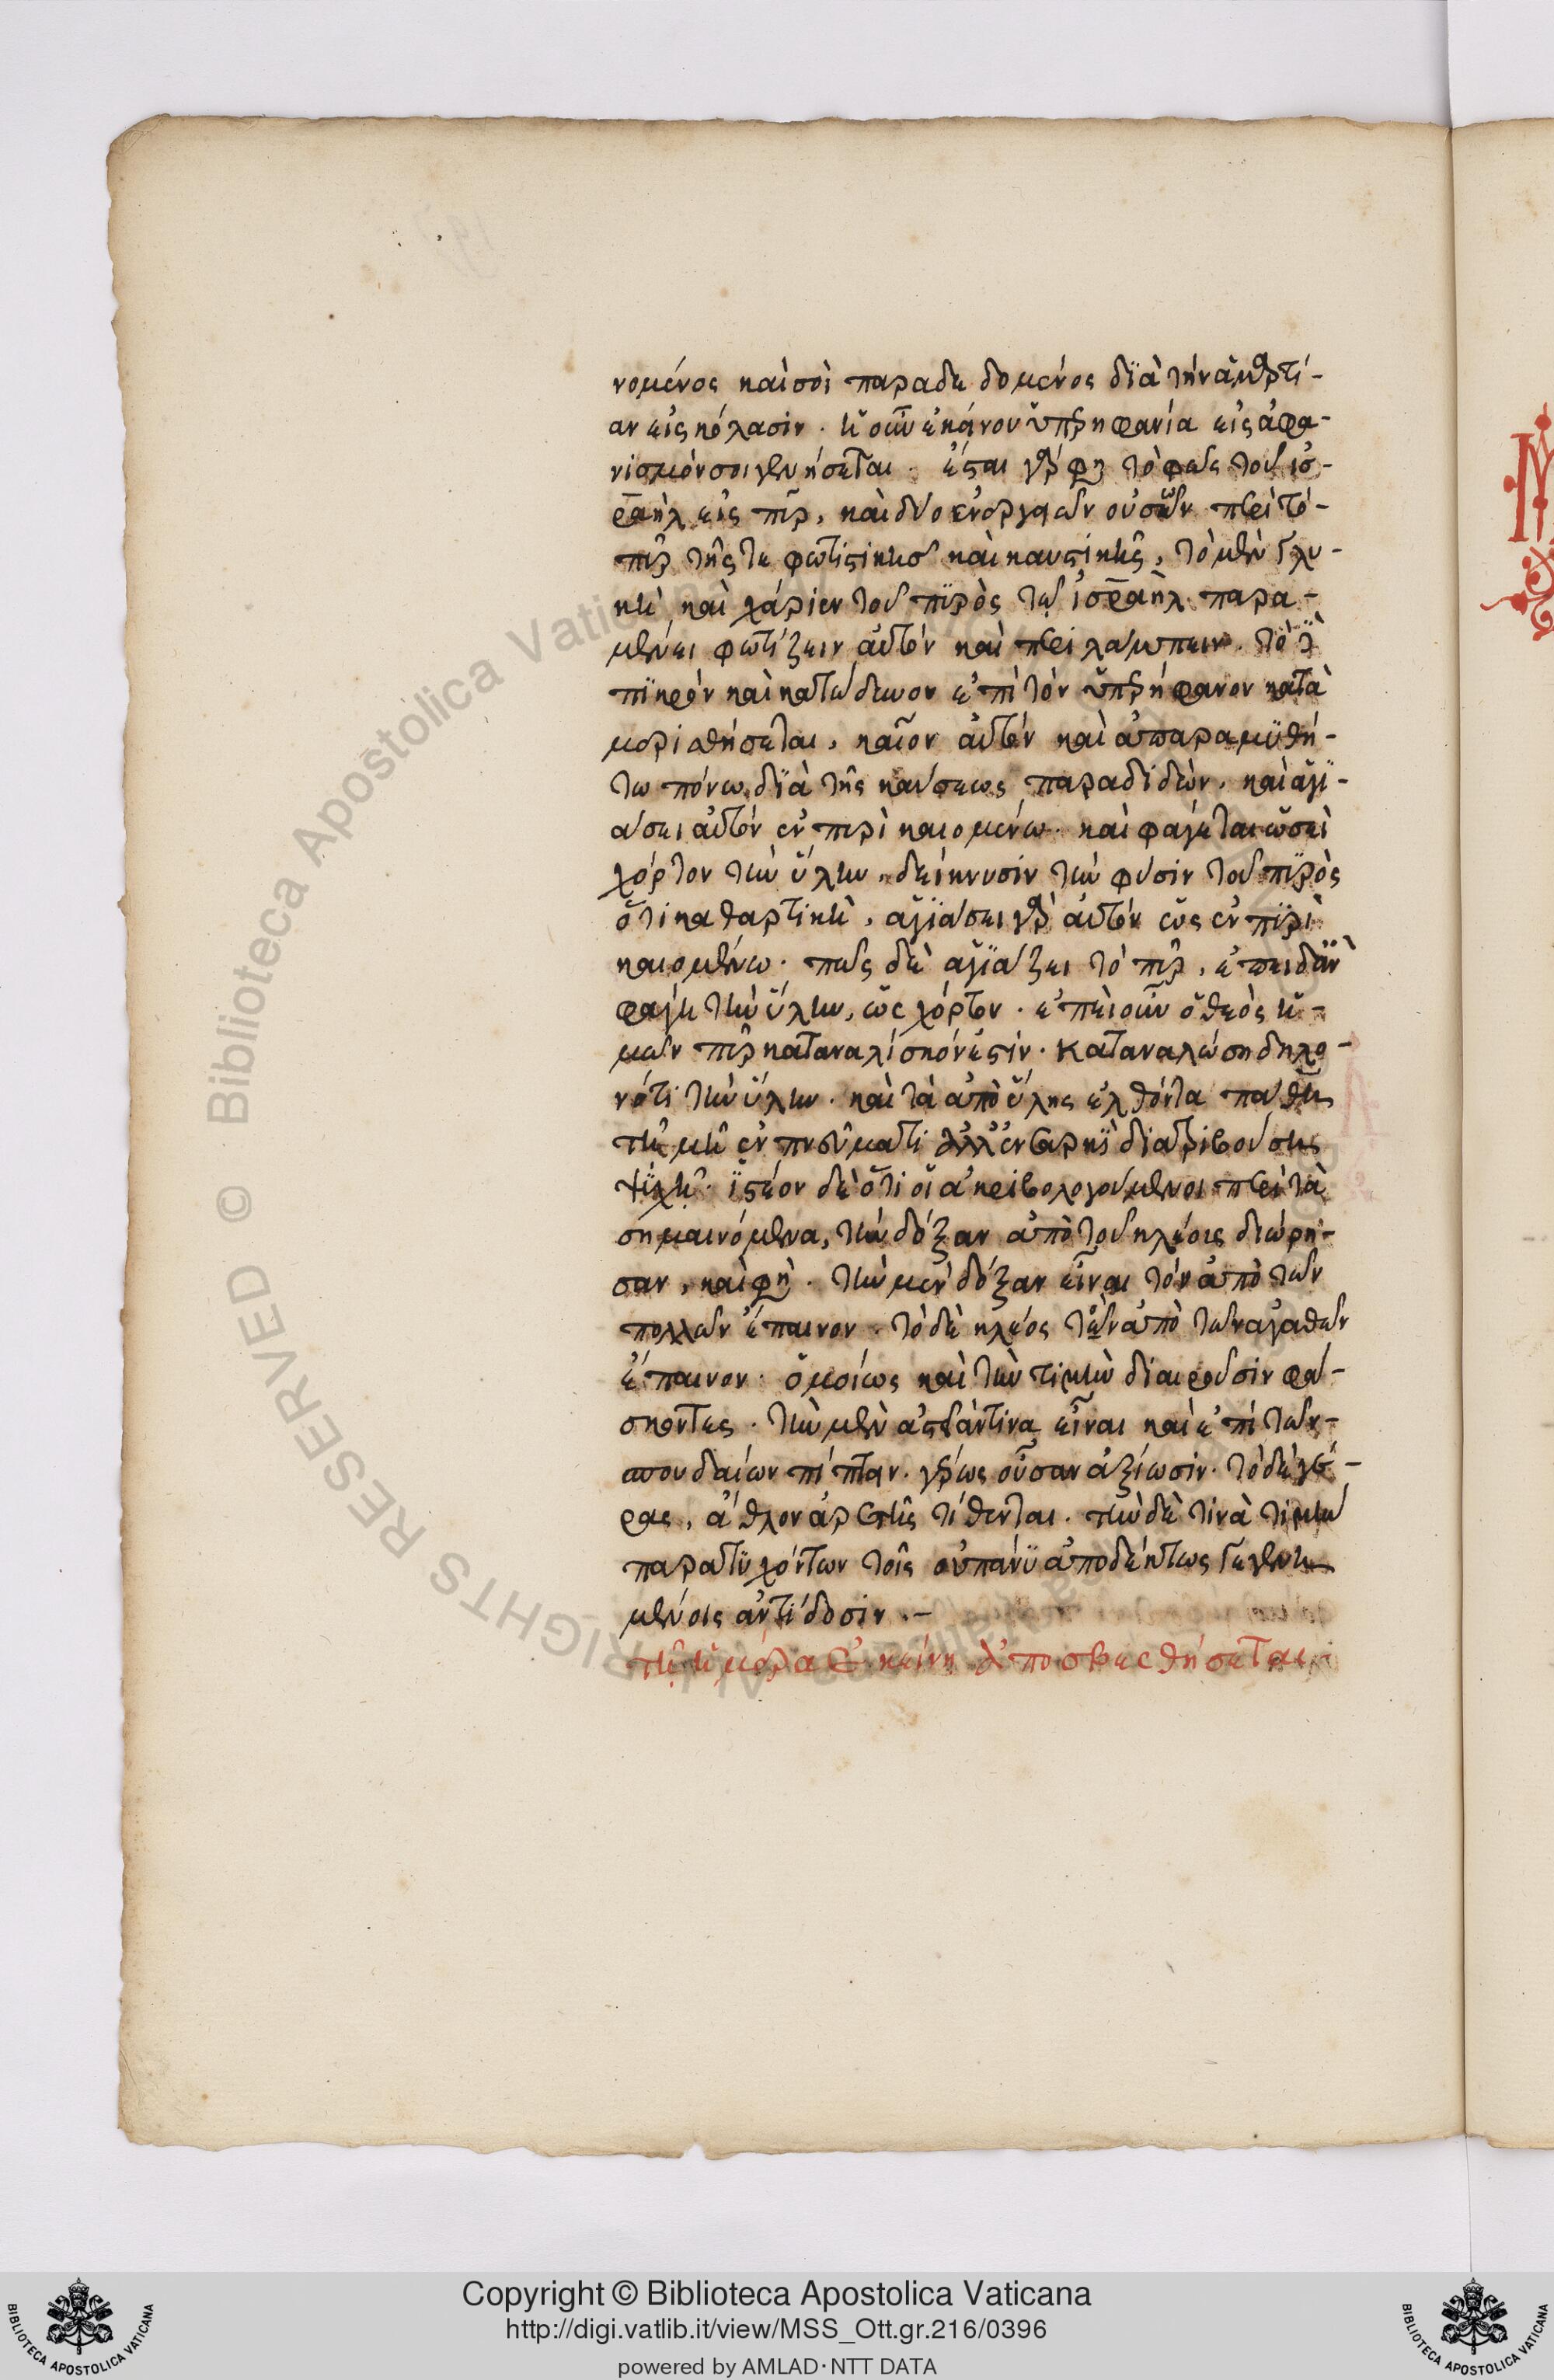 νομένος καὶ σοὶ παραδεδομένος δϊὰ τὴν ἁμαρτί-
αν εἰς κόλασιν. ἡ οὖν ἐκείνου ὑπερηφανία εἰς ἀφα-
νισμόν σοι γενήσεται. ἔσται γάρ φη τὸ φῶς τοῦ ισ-
ραὴλ εἰς πῦρ, καὶ δύο ἐνεργειῶν οὐσῶν περὶ τὸ-
πῦρ τῆς τε φωτιστικῆσ καὶ καυστικῆς, τὸ μὲν γλυ-
κὺ καὶ χάριεν τοῦ πϋρὸς τῷ ἰσραὴλ παρα-
μένει φωτίζειν αὐτὸν καὶ περιλάμπειν. τὸ δὲ
πϊκρὸν καὶ κατώδυνον ἐπὶ τὸν ὑπερήφανον κατὰ
μερισθήσεται, καῖον αὐτὸν καὶ ἀπαραμϋθή-
τω πόνω δϊὰ τῆς καύσεως παραδιδὼν. καὶ ἁγϊ-
άσει αὐτὸν ἐν πυρὶ καιομένω. καὶ φάγεται ὡσεὶ
χόρτον τὴν ὕλην. δείκνυσιν τὴν φύσιν τοῦ πϋρὸς
ὅτι καθαρτικὴ, ἁγϊάσει γὰρ αὐτὸν ὡς ἐν πϋρὶ
καιομένω. πῶς δὲ ἁγϊάζει τὸ πῦρ, ἐπειδὰν
φάγη τὴν ὕλην, ὡς χόρτον. ἐπεὶ οὖν ὁ θεὸς ἡ-
μῶν πῦρ καταναλίσκον ἐστίν. καταναλώση δηλο-
νότι τὴν ὕλην. καὶ τὰ ἀπὸ ὕλης ἐλθόντα πάθη
τῆ μὴ ἐν πνεύματι ἀλλ' ἐν σαρκϊ διατριβούσης
ψϋχῆ. ϊστέον δὲ ὅτι οἱ ἀκριβολογούμενοι περὶ τὰ
σημαινόμενα, τὴν δόξαν ἀπὸ τοῦ κλέους διώρι-
σαν, καὶ φη. τὴν μὲν δόξαν εἶναι τὸν ἀπὸ τῶν
πολλῶν ἔπαινον. τὸ δὲ κλέος τὸν ἀπὸ τῶν ἀγαθῶν
ἔπαινον. ὁμοίως καὶ τὴν τιμὴν διαιροῦσιν φά-
σκοντες. τὴν μὲν εἶναι καὶ ἐπὶ τῶν-
σπουδαίων οὖσαν ἀξίωσιν. τὸ δὲ γέ-
ρας, ἆθλον ἀρετῆς τίθενται. τὴν δὲ τινὰ τιμὴν
παρατϋχόντων τοῖς οὐπάνϋ ἀποδέκτως γεγενη
μένοις ἀντίδοσιν.-
τῆ ἡμέρα ἐκείνη ἀποσβεσθήσεται
Copyright © Biblioteca Apostolica Vaticana
http://digi.vatlib.it/view/MSS_Ott.gr.216/0396
powered by AMLAD·NTT DATA